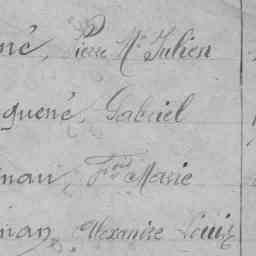 né, Pierre Mie Julien
guené, Gabriel
nan, Fois Marie
nan, Alexandre Louis